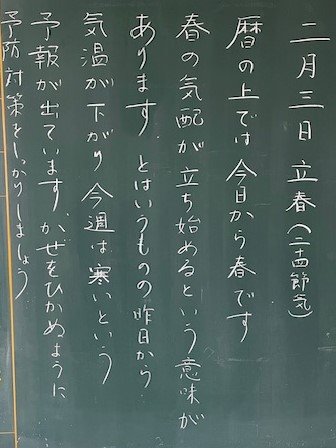 二月三日 立春(二十四節気)
暦の上では今日から春です
春の気配が立ち始めるという意味が
あります。とはいうものの昨日から
気温が下がり今週は寒いという
予報が出ています。かぜをひかぬように
予防対策をしっかりしましょう